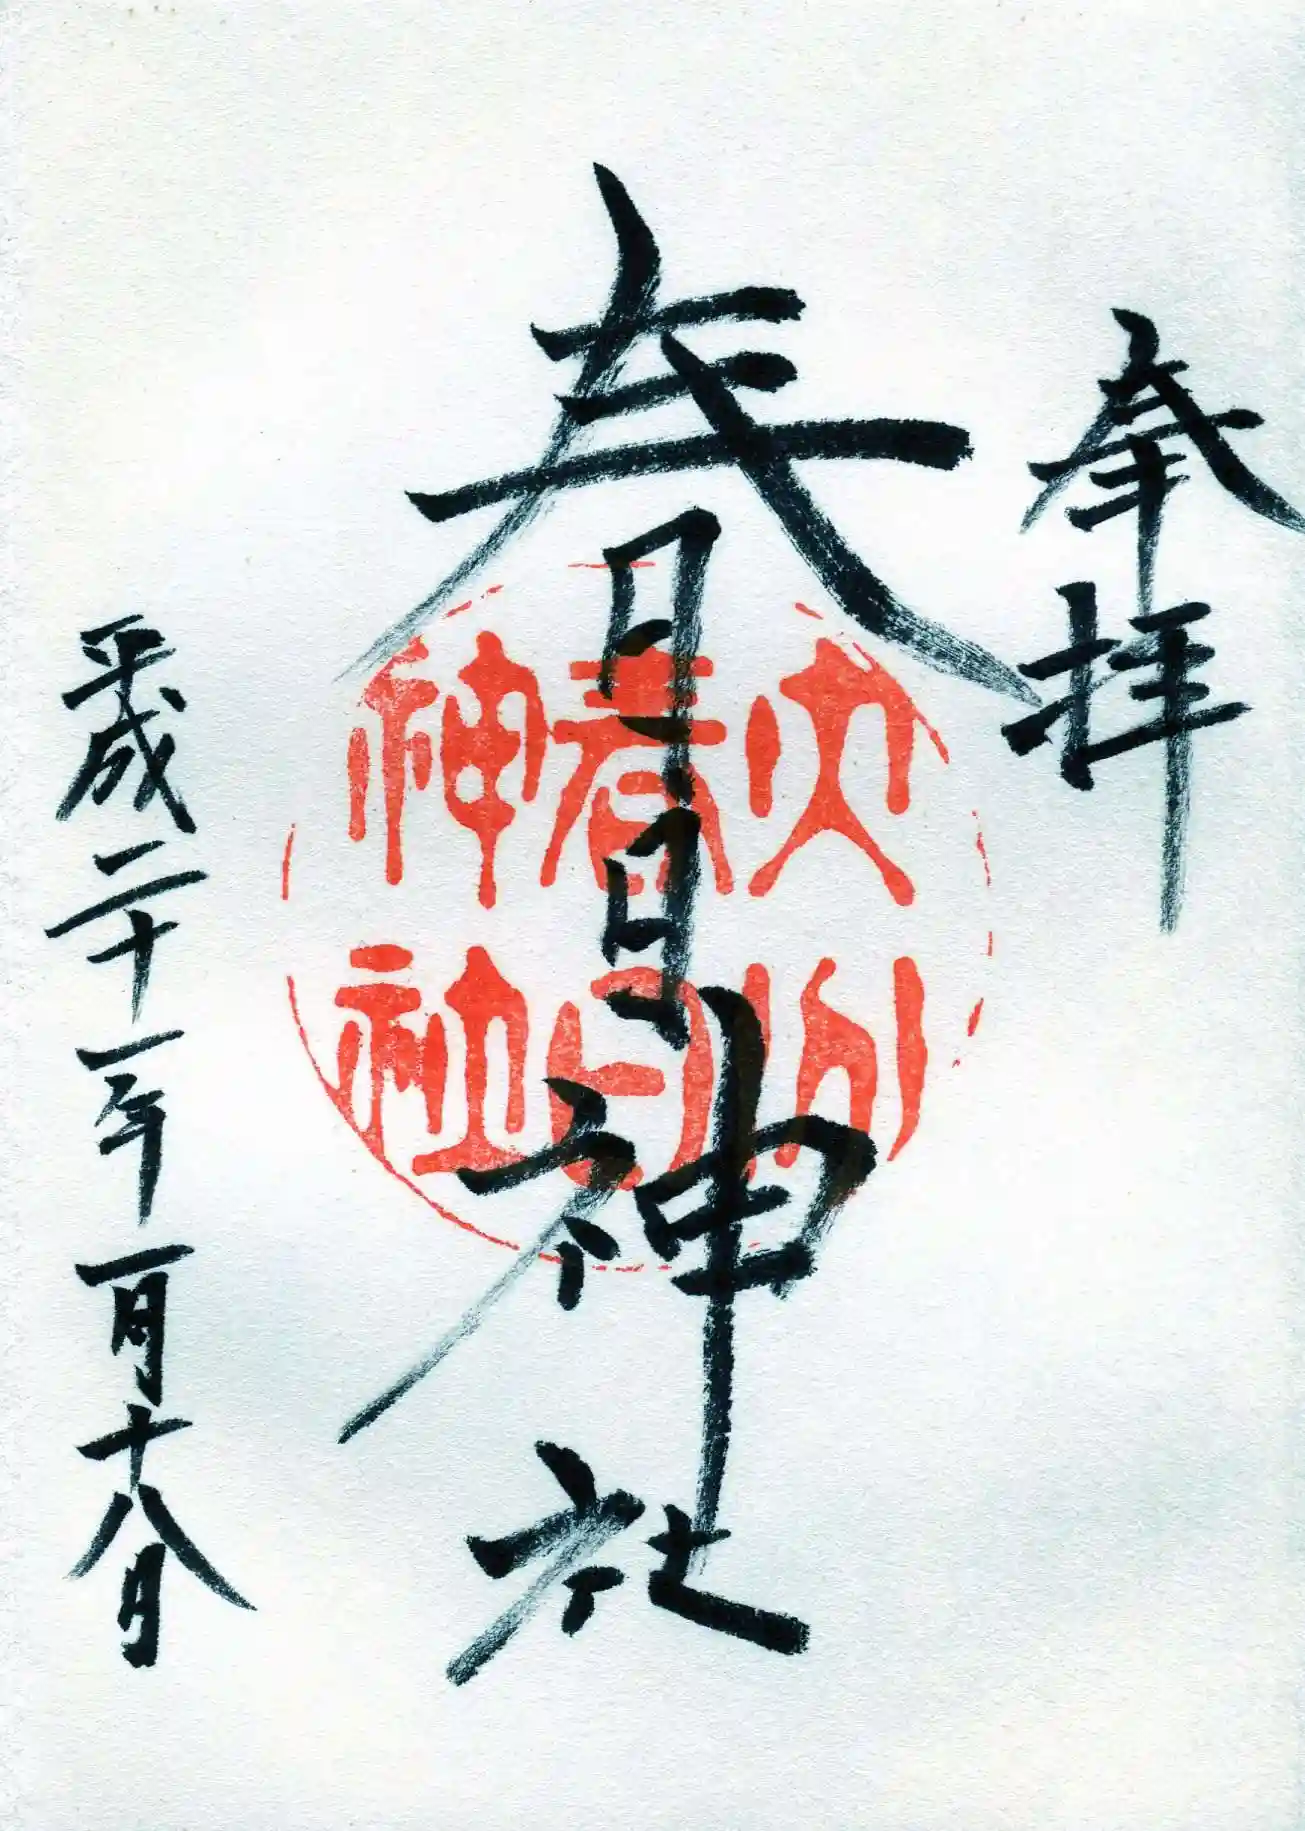 奉拝
春日神社
大分
春日
神社
平成二十一年一月十八日